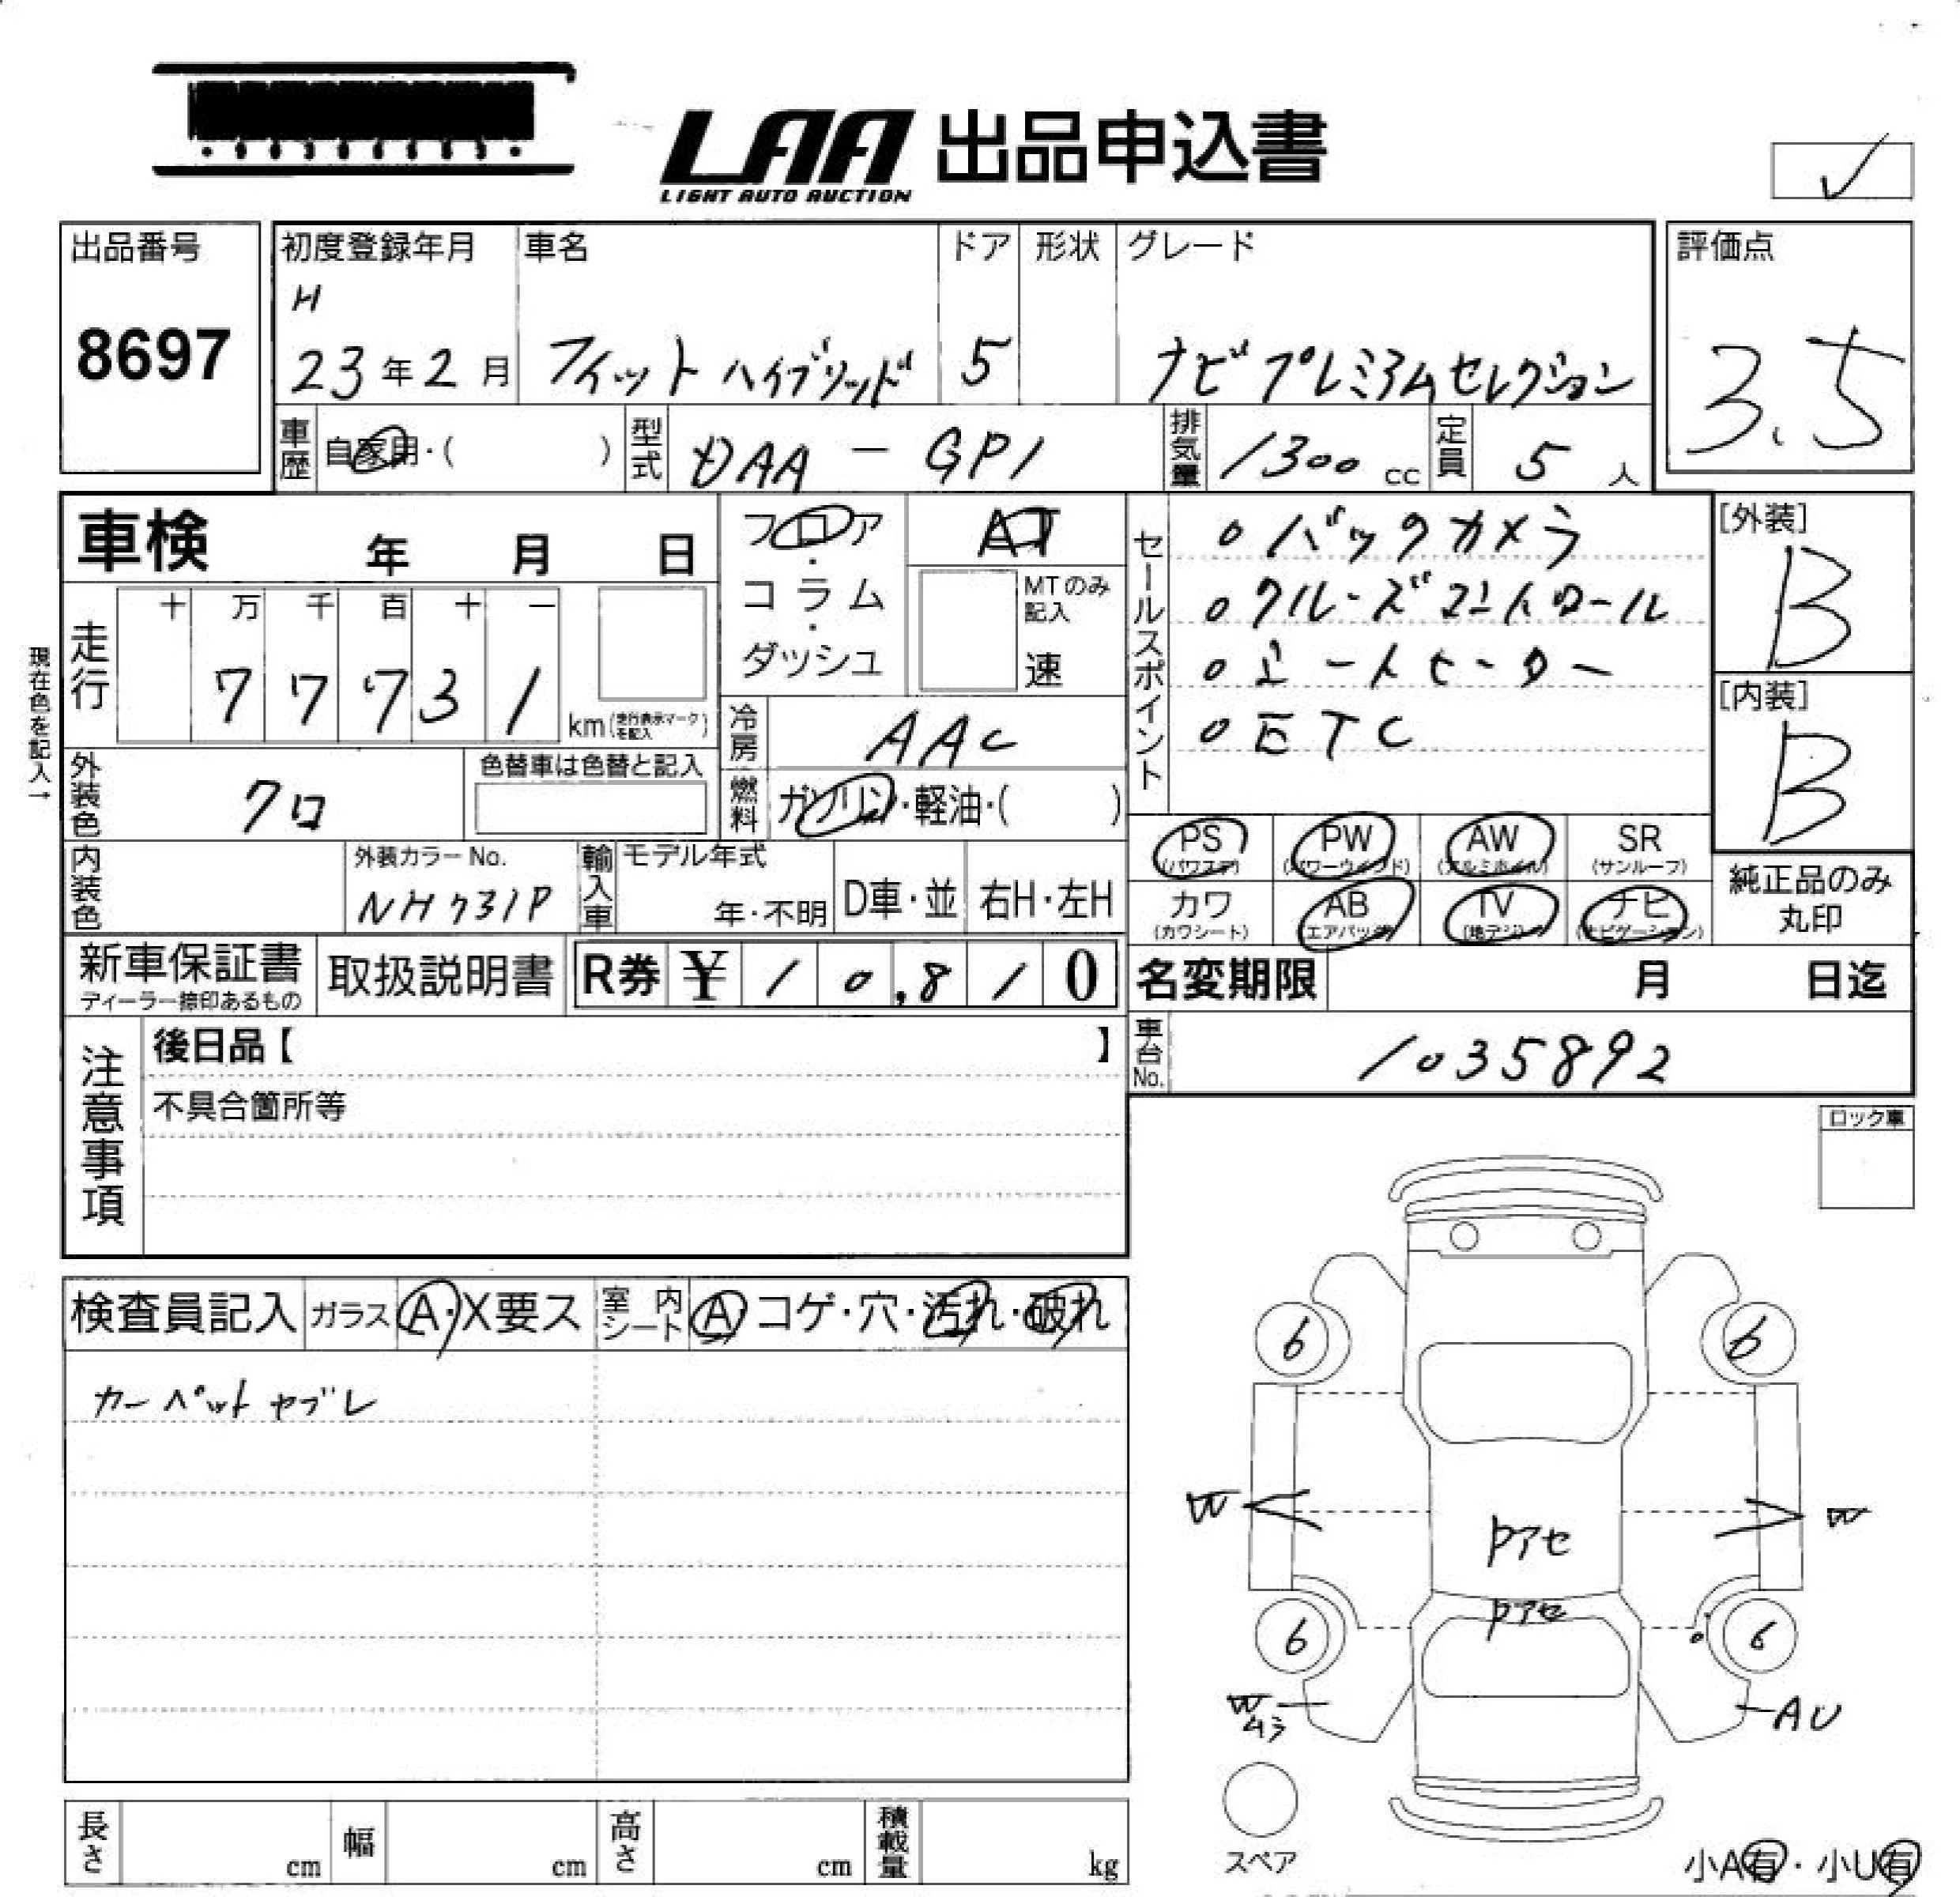 LAA 出品申込書
LIGHT AUTO AUCTION
✓
出品番号
8697
初度登録年月
H
23年2月
車名
フィット ハイブリッド
ドア
5
形状
グレード
ナビプレミアムセレクション
評価点
3.5
車歴 自家用・( )
型式 DAA - GP1
排気量 1300 cc
定員 5 人
車検 年 月 日
フロア・コラム・ダッシュ
AT
MTのみ記入
速
セールスポイント
○バックカメラ
○クルーズコントロール
○シートヒーター
○ETC
[外装]
B
[内装]
B
現在色を記入→
走行 十 万 千 百 十 一
77731 km(走行表示マークを記入)
冷房 AAC
外装色 クロ
色替車は色替と記入
燃料 ガソリン・軽油・( )
内装色
外装カラーNo.
NH731P
輸入車 モデル年式
年・不明
D車・並
右H・左H
PS (パワステ)
PW (パワーウインド)
AW (アルミホイル)
SR (サンルーフ)
カワ (カワシート)
AB (エアバック)
TV (地デジ)
ナビ (ナビゲーション)
純正品のみ丸印
新車保証書
ディーラー捺印あるもの
取扱説明書
R券 ¥ 10,810
名変期限 月 日迄
車台No. 1035892
注意事項
後日品【 】
不具合箇所等
ロック車
検査員記入 ガラス A・X要ス 室内シート A コゲ・穴・汚れ・破れ
カーペットヤブレ
6 6
W W
ドアセ
ドアセ
6 6
W AU
スペア
長さ cm 幅 cm 高さ cm 積載量 kg
小A有・小U有